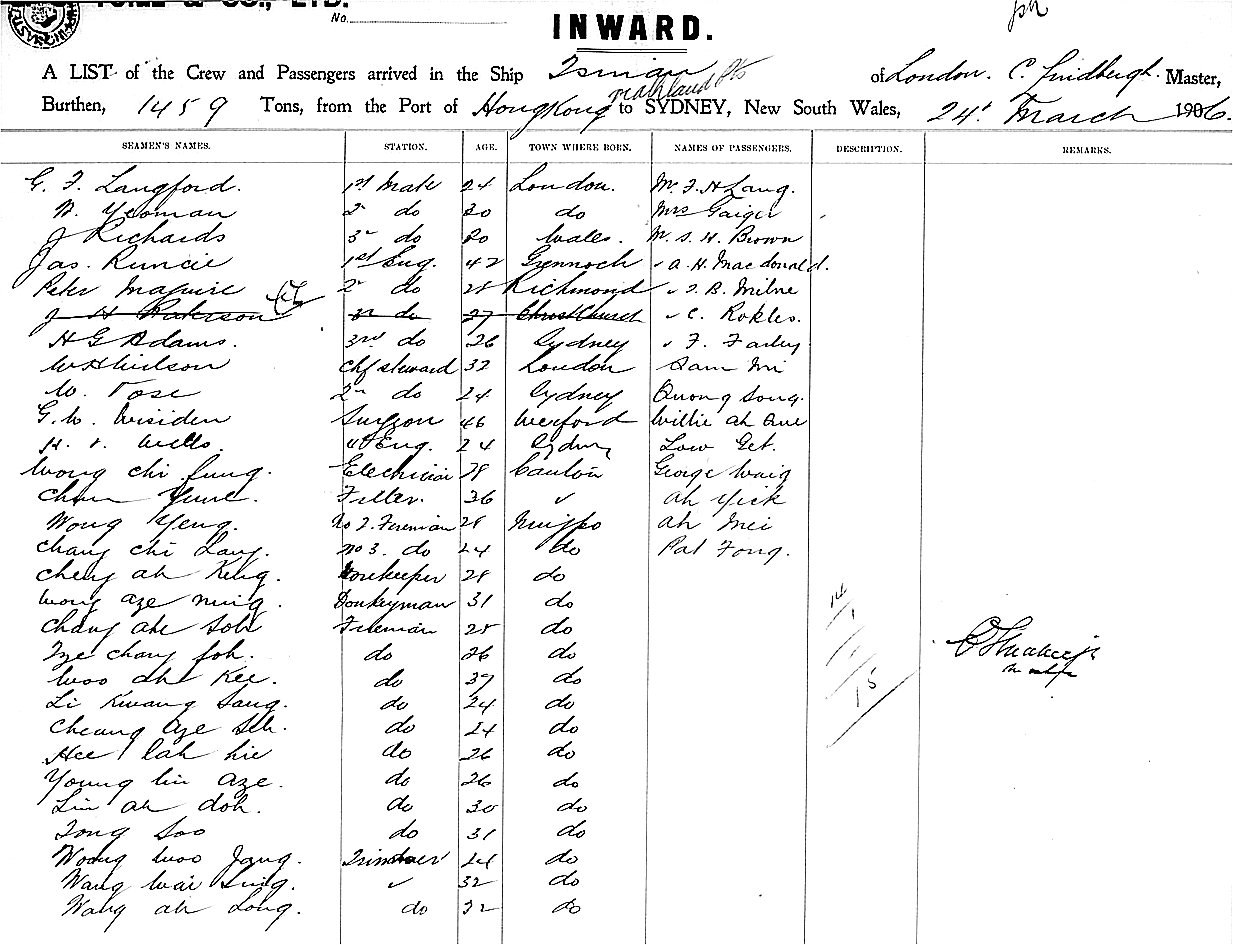 & CO., LTD.
No.
INWARD.
A LIST of the Crew and Passengers arrived in the Ship Tsinan of London. C. Lindbergh. Master,
Burthen, 1459 Tons, from the Port of Hong Kong to SYDNEY, New South Wales, 24' March 1906.
SEAMEN'S NAMES. STATION. AGE. TOWN WHERE BORN. NAMES OF PASSENGERS. DESCRIPTION. REMARKS.
G. F. Langford. 1st Mate 24 London. Mr. F. H Lang.
W. Yeoman 2 do 30 do Mrs Gaiger
J Richards 3 do 20 Wales. M. S. H. Brown
Jas. Runcie 1st Eng. 42 Grennoch A. H. Macdonald.
Peter Maguire 2 do 28 Richmond J. B. Milne
J H Paterson 3r do 27 ChristChurch C. Rokles.
H G Adams. 3rd do 26 Sydney F. Farley
W H Wilson Chf Steward 32 London Sam
W. Tose 2 do 24 Sydney Quong Song.
G. W. Surgeon 46 Wexford Willie Ah Que
H. Wells. 4th Eng. 24 Sydney Low Get.
Wong Chi Fung. Electrician 28 Canton George
Chan Fitter. 36 ✓ Ah Yick
Wong Yeng. No 2. Fireman 28 Ningpo Ah Mei
Chang Chi Lang. No 3. do 24 do Pat Fong.
Cheng Ah King. Storekeeper 28 do
Wong Aze Ning. Donkeyman 31 do
Chang Ah Soh Fireman 25 do
Tze Chang Foh. do 26 do
Woo Ah Kee. do 37 do
Li Kwang Sang. do 24 do
Cheung Aze Soh. do 24 do
Hee Lah hie do 26 do
Young lin Aze. do 26 do
Lin Ah doh. do 30 do
Tong Soo do 31 do
Woong Woo Jang. Trimmer 24 do
Wang Wai Ling. ✓ 32 do
Wang Ah Long. do 32 do
14
1
15